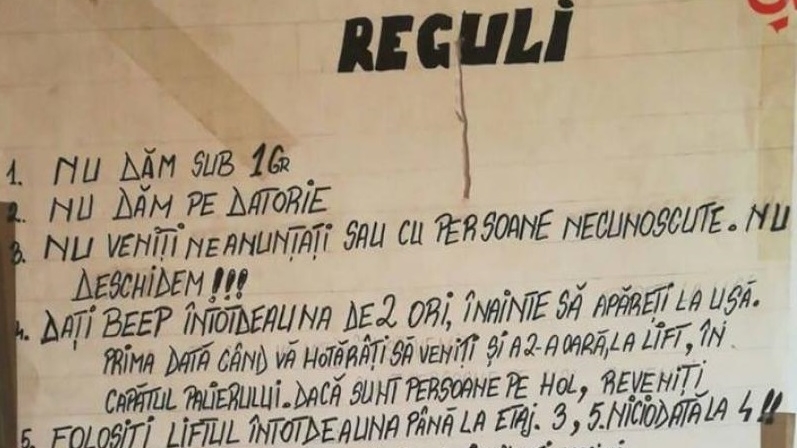 REGULI
1. NU DĂM SUB 1Gr
2. NU DĂM PE DATORIE
3. NU VENIȚI NEANUNȚAȚI SAU CU PERSOANE NECUNOSCUTE. NU
DESCHIDEM!!!
4. DAȚI BEEP ÎNTOTDEAUNA DE 2 ORI, ÎNAINTE SĂ APĂREȚI LA UȘĂ.
PRIMA DATĂ CÂND VĂ HOTĂRÂȚI SĂ VENITI ȘI A 2-A OARĂ, LA LIFT, ÎN
CAPĂTUL PALIERULUI. DACĂ SUNT PERSOANE PE HOL, REVENIȚI
5. FOLOSIȚI LIFTUL ÎNTOTDEAUNA PÂNĂ LA ETAJ. 3, 5. NICIODATĂ LA 4!!